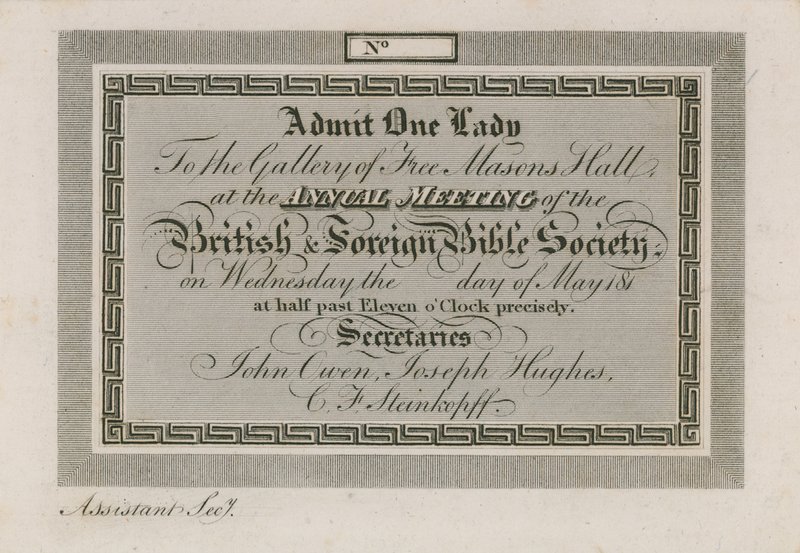 Nº
Admit One Lady
To the Gallery of Free Masons Hall,
at the ANNUAL MEETING of the
British & Foreign Bible Society:
on Wednesday the day of May 181
at half past Eleven o'Clock precisely.
Secretaries
John Owen, Joseph Hughes,
C. F. Steinkopff.
Assistant Secy.